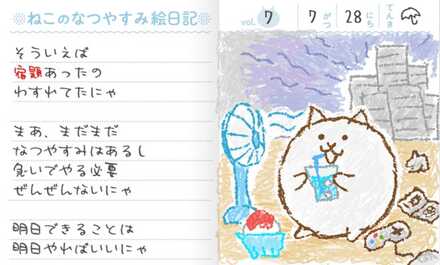 ねこのなつやすみ絵日記
vol. 7
7がつ 28にち てんき
そういえば
宿題あったの
わすれてたにゃ
まあ、まだまだ
なつやすみはあるし
急いでやる必要
ぜんぜんないにゃ
明日できることは
明日やればいいにゃ